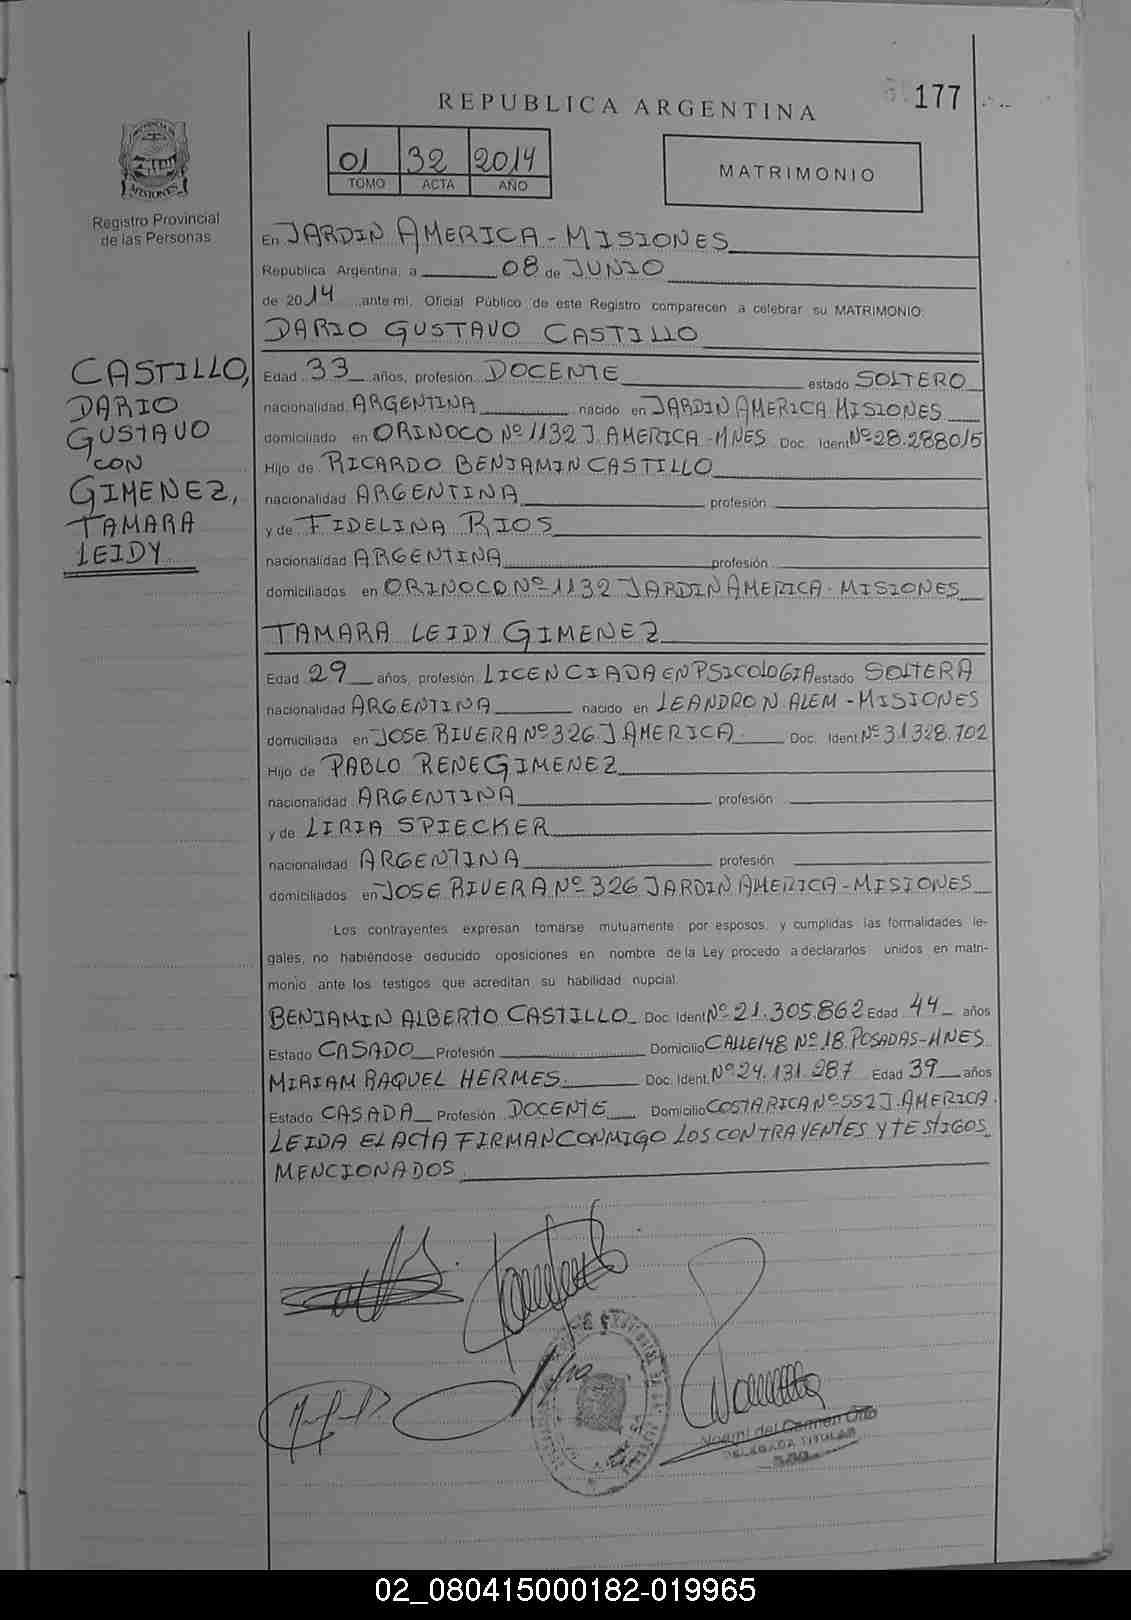 REPUBLICA ARGENTINA
177
01 32 2014
TOMO ACTA AÑO
MATRIMONIO
MISIONES
Registro Provincial
de las Personas
En JARDIN AMERICA - MISIONES
Republica Argentina, a 08 de JUNIO
de 2014 ante mi, Oficial Público de este Registro comparecen a celebrar su MATRIMONIO:
DARIO GUSTAVO CASTILLO
CASTILLO,
DARIO
GUSTAVO
CON
GIMENEZ,
TAMARA
LEIDY
Edad 33 años, profesión DOCENTE estado SOLTERO
nacionalidad ARGENTINA nacido en JARDIN AMERICA MISIONES
domiciliado en ORINOCO Nº 1132 J. AMERICA - MNES Doc. Ident Nº 28.288015
Hijo de RICARDO BENJAMIN CASTILLO
nacionalidad ARGENTINA profesión
y de FIDELINA RIOS
nacionalidad ARGENTINA profesión
domiciliados en ORINOCO Nº 1132 JARDIN AMERICA - MISIONES
TAMARA LEIDY GIMENEZ
Edad 29 años, profesión LICENCIADA EN PSICOLOGIA estado SOLTERA
nacionalidad ARGENTINA nacido en LEANDRO N. ALEM - MISIONES
domiciliada en JOSE RIVERA Nº 326 J. AMERICA Doc. Ident Nº 31.328.702
Hijo de PABLO RENE GIMENEZ
nacionalidad ARGENTINA profesión
y de LIRIA SPIECKER
nacionalidad ARGENTINA profesión
domiciliados en JOSE RIVERA Nº 326 JARDIN AMERICA - MISIONES
Los contrayentes expresan tomarse mutuamente por esposos, y cumplidas las formalidades le-
gales, no habiéndose deducido oposiciones en nombre de la Ley procedo a declararlos unidos en matri-
monio ante los testigos que acreditan su habilidad nupcial.
BENJAMIN ALBERTO CASTILLO Doc. Ident Nº 21.305.862 Edad 44 años
Estado CASADO Profesión Domicilio CALLE 148 Nº 18. POSADAS - MNES
MIRIAM RAQUEL HERMES. Doc. Ident. Nº 24.131.287 Edad 39 años
Estado CASADA Profesión DOCENTE Domicilio COSTA RICA Nº 552 J. AMERICA.
LEIDA EL ACTA FIRMAN CONMIGO LOS CONTRAYENTES Y TESTIGOS
MENCIONADOS
del Carmen
DELEGADA TITULAR
02_080415000182-019965